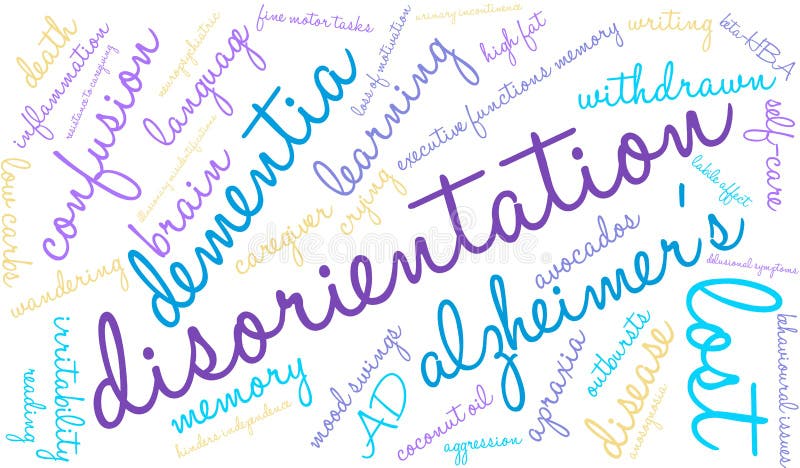 death
inflammation
resistance to caregiving
confusion
neuropsychiatric
languag
fine motor tasks
urinary incontinence
loss of motivation
high fat
writing
beta-HBA
dementia
learning
executive functions memory
withdrawn
self-care
low carbs
brain
illusionary misidentifications
caregiver
crying
disorientation
labile affect
wandering
alzheimer's
avocados
delusional symptoms
lost
irritability
reading
memory
hinders independence
mood swings
AD
coconut oil
aggression
apraxia
outbursts
disease
anosognosia
behavioural issues
dreamstime